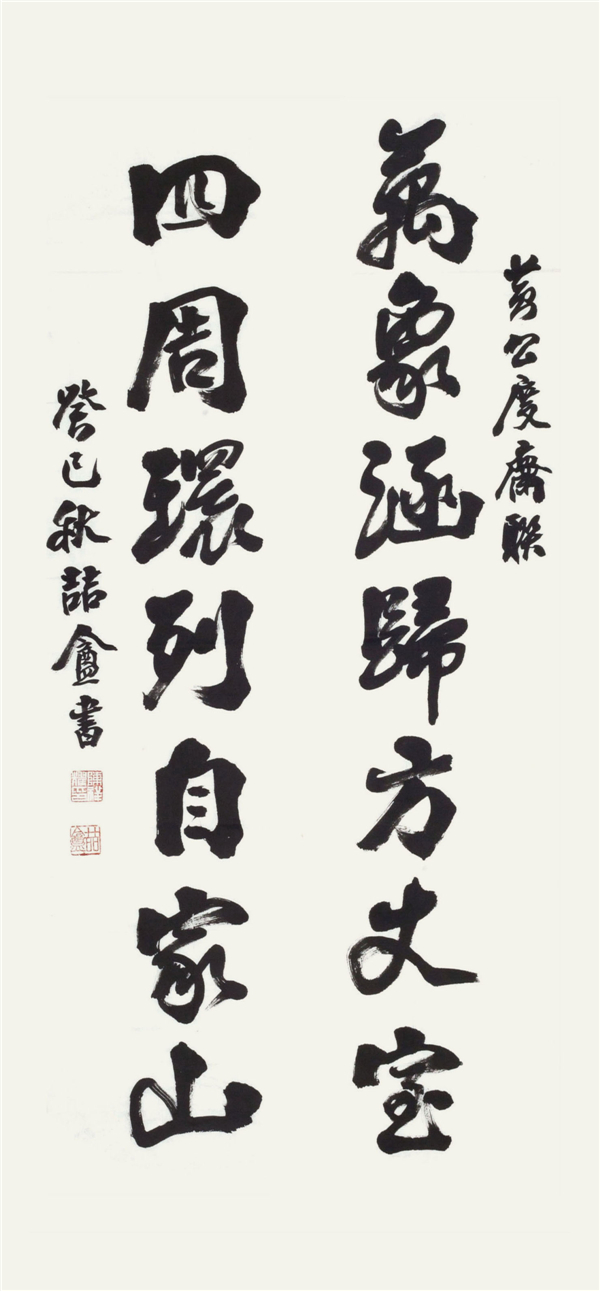 黄公度齋聯
萬象涵歸方丈室
四周環列自家山
癸巳秋喆盦書